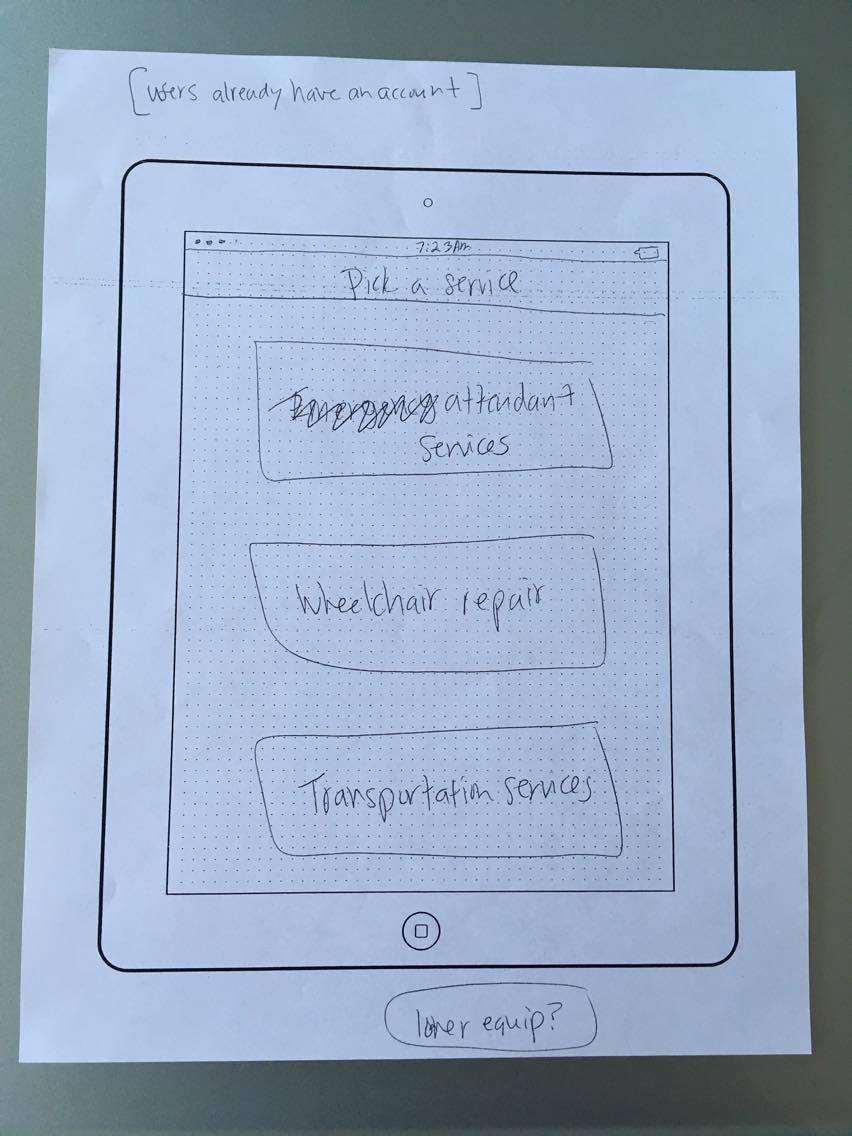 [users already have an account]
7:23 AM
Pick a service
Emergency attendant
services
Wheelchair repair
Transportation services
loner equip?